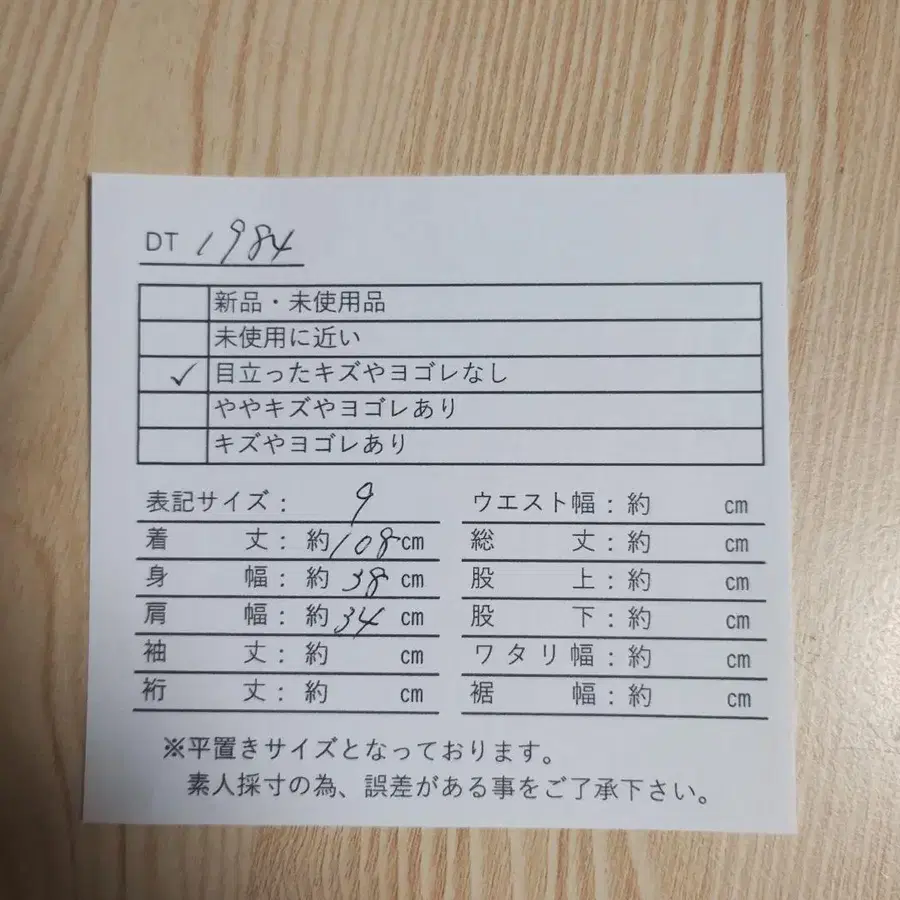 DT 1984
新品・未使用品
未使用に近い
✓ 目立ったキズやヨゴレなし
ややキズやヨゴレあり
キズやヨゴレあり
表記サイズ： 9
着丈：約108cm
身幅：約38cm
肩幅：約34cm
袖丈：約 cm
裄丈：約 cm
ウエスト幅：約 cm
総丈：約 cm
股上：約 cm
股下：約 cm
ワタリ幅：約 cm
裾幅：約 cm
※平置きサイズとなっております。
素人採寸の為、誤差がある事をご了承下さい。